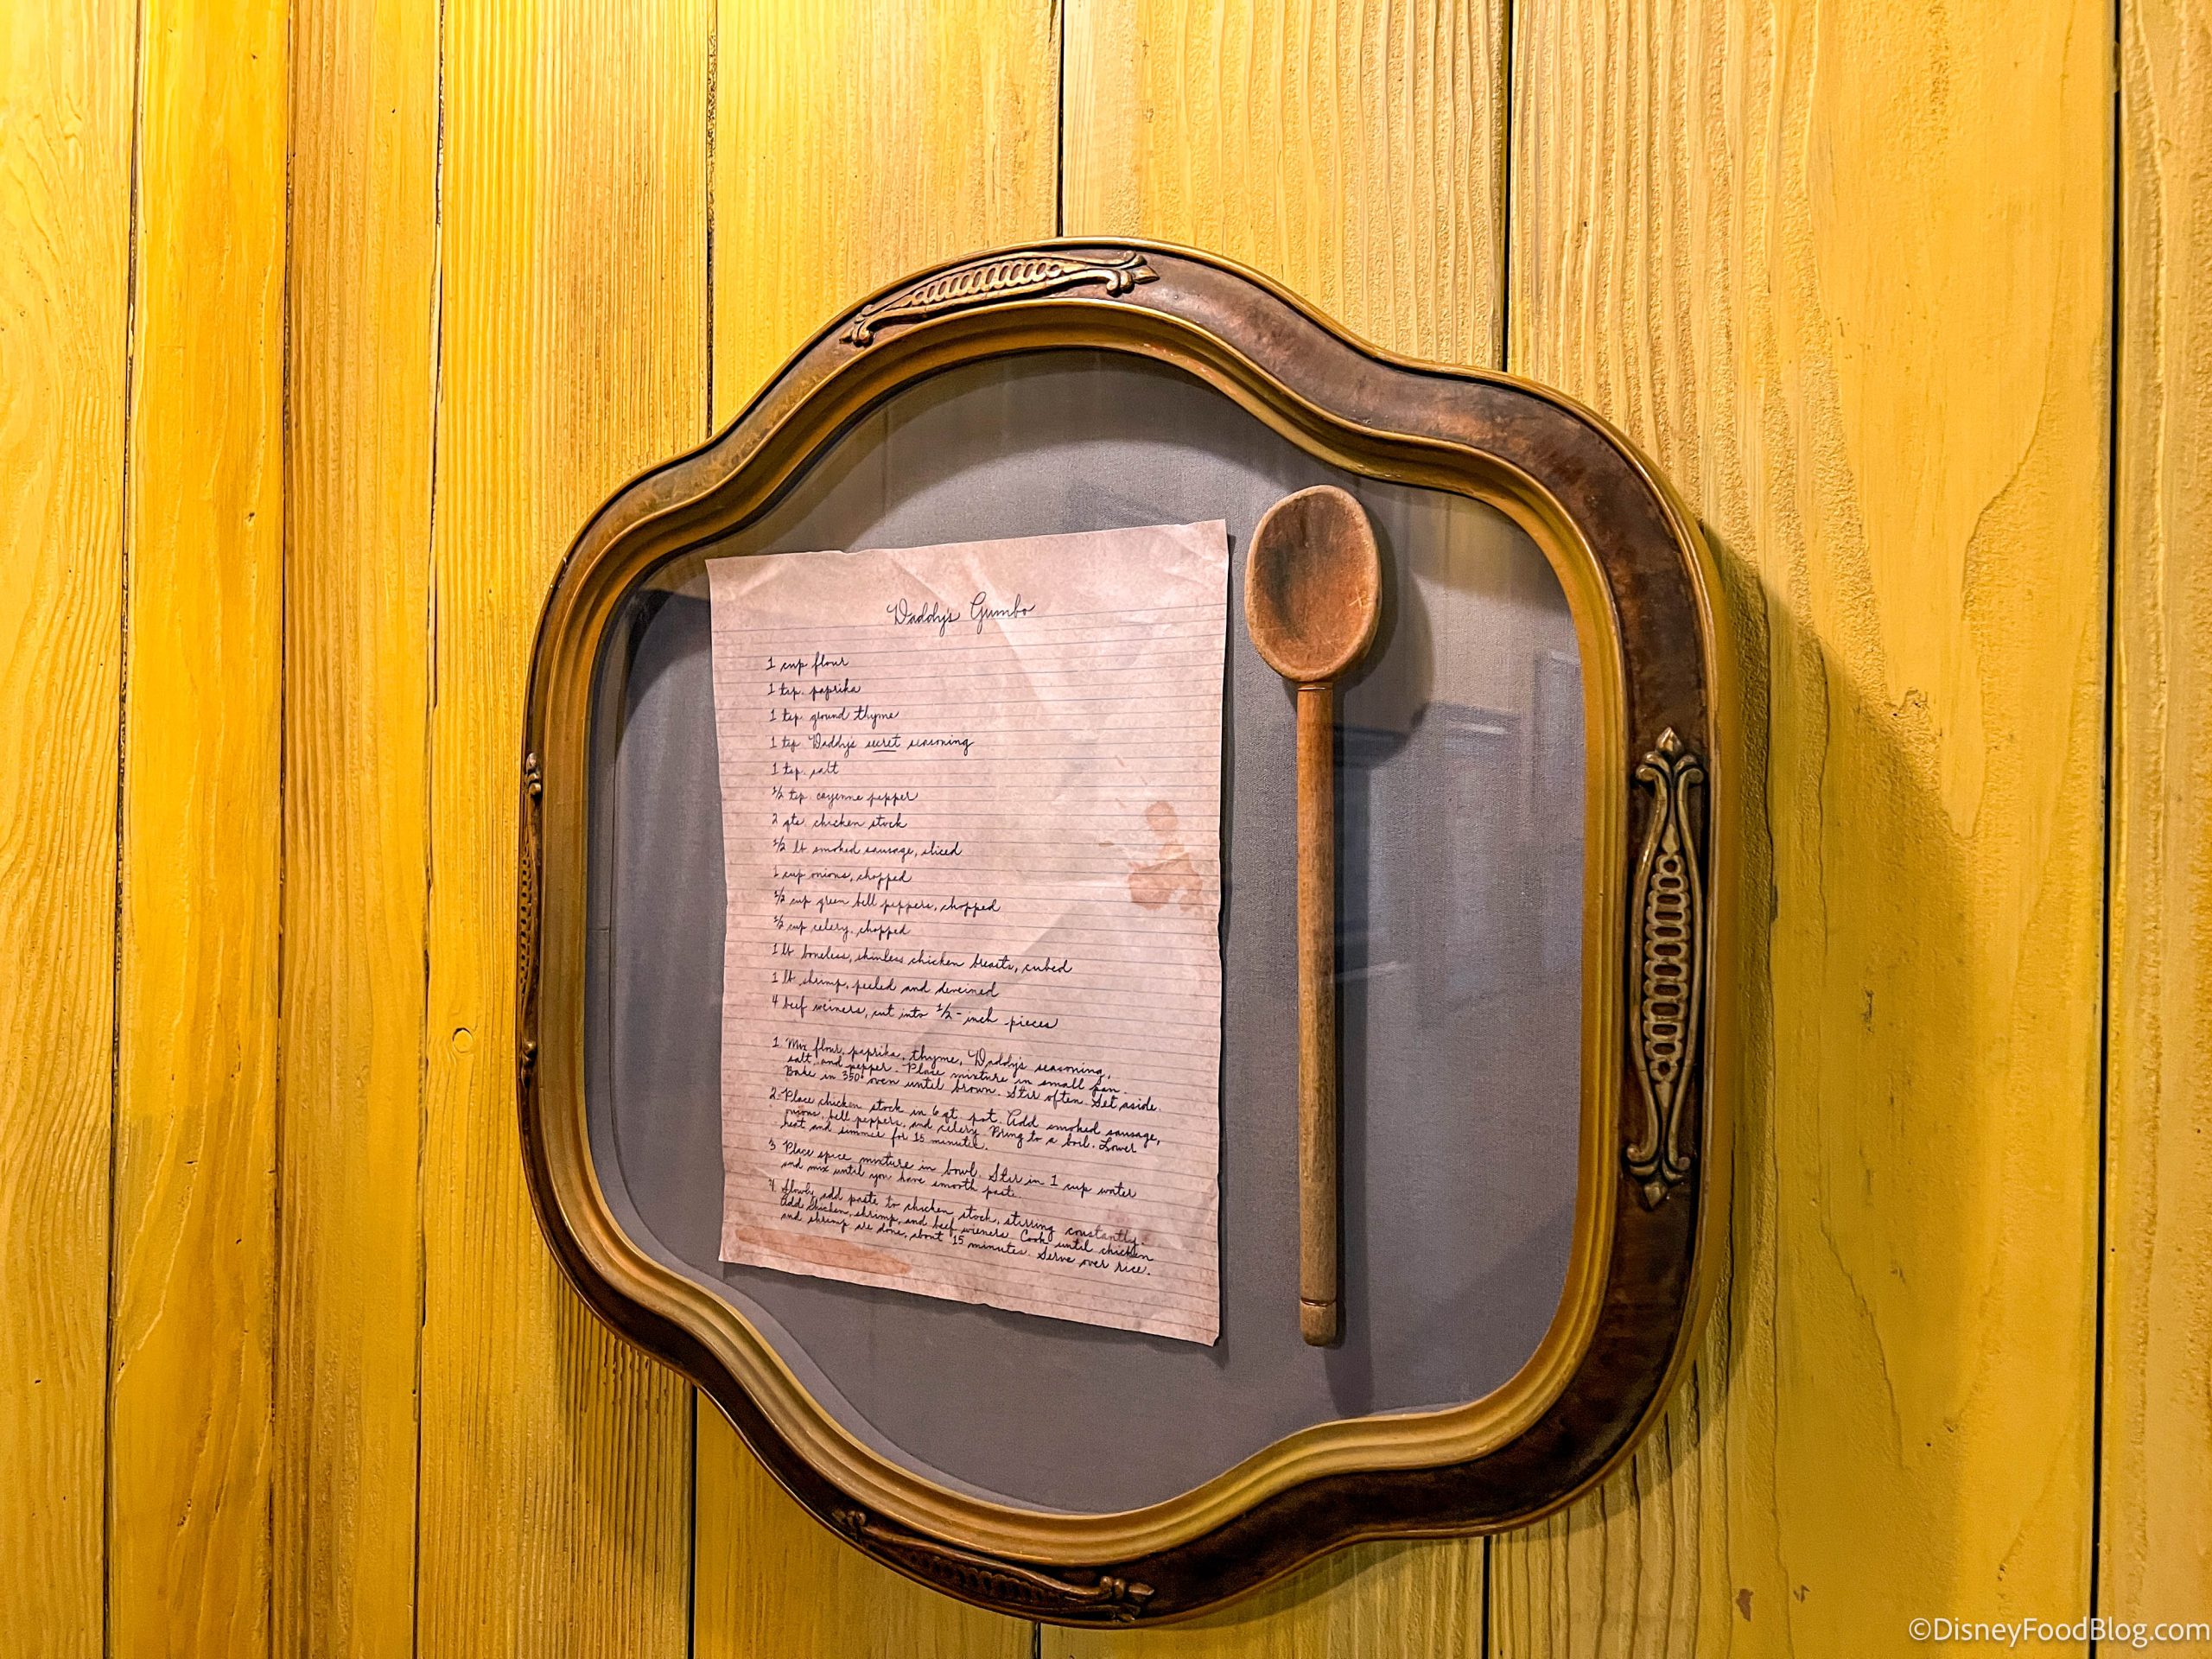 Daddy's Gumbo
1 cup flour
1 tsp. paprika
1 tsp. ground thyme
1 tsp Daddy's secret seasoning
1 tsp. salt
1/2 tsp. cayenne pepper
2 qts. chicken stock
1/2 lb smoked sausage, sliced
1 cup onions, chopped
1/2 cup green bell peppers, chopped
1/2 cup celery, chopped
1 lb boneless, skinless chicken breasts, cubed
1 lb shrimp, peeled and deveined
4 beef weiners, cut into 1/2-inch pieces
1. Mix flour, paprika, thyme, Daddy's seasoning,
salt, and pepper. Place mixture in small pan.
Bake in 350° oven until brown. Stir often. Set aside.
2. Place chicken stock in 6 qt. pot. Add smoked sausage,
onions, bell peppers, and celery. Bring to a boil. Lower
heat and simmer for 15 minutes.
3 Place spice mixture in bowl. Stir in 1 cup water
and mix until you have smooth paste.
4. Slowly add paste to chicken stock, stirring constantly.
Add chicken, shrimp, and beef wieners. Cook until chicken
and shrimp are done, about 15 minutes. Serve over rice.
©DisneyFoodBlog.com